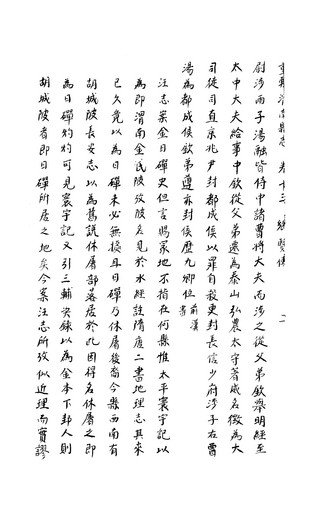 重輯渭南縣志 卷十三 鄉賢傳 二
尉涉兩子湯融皆侍中諸曹將大夫而涉之從父弟欽舉明經至
太中大夫給事中欽從父弟遷為泰山弘農太守著威名徵為大
司徒司直京兆尹封都成侯以罪自殺更封長信少府涉子右曹
湯為都成侯欽弟遵亦封侯歷九卿位前漢書
汪志案金日磾史但言賜冢地不指在何縣惟太平寰宇記以
為即渭南金氏陂攷陂名見於水經註隋唐二書地理志其來
已久竟以為日磾未必無據且日磾乃休屠後裔今縣西南有
胡城陂長安志以為舊說休屠部落居於此因得名休屠之即
為日磾灼灼可見寰宇記又引三輔決錄以為金本下邽人則
胡城陂者即日磾所居之地矣今案汪志所攷似近理而實謬